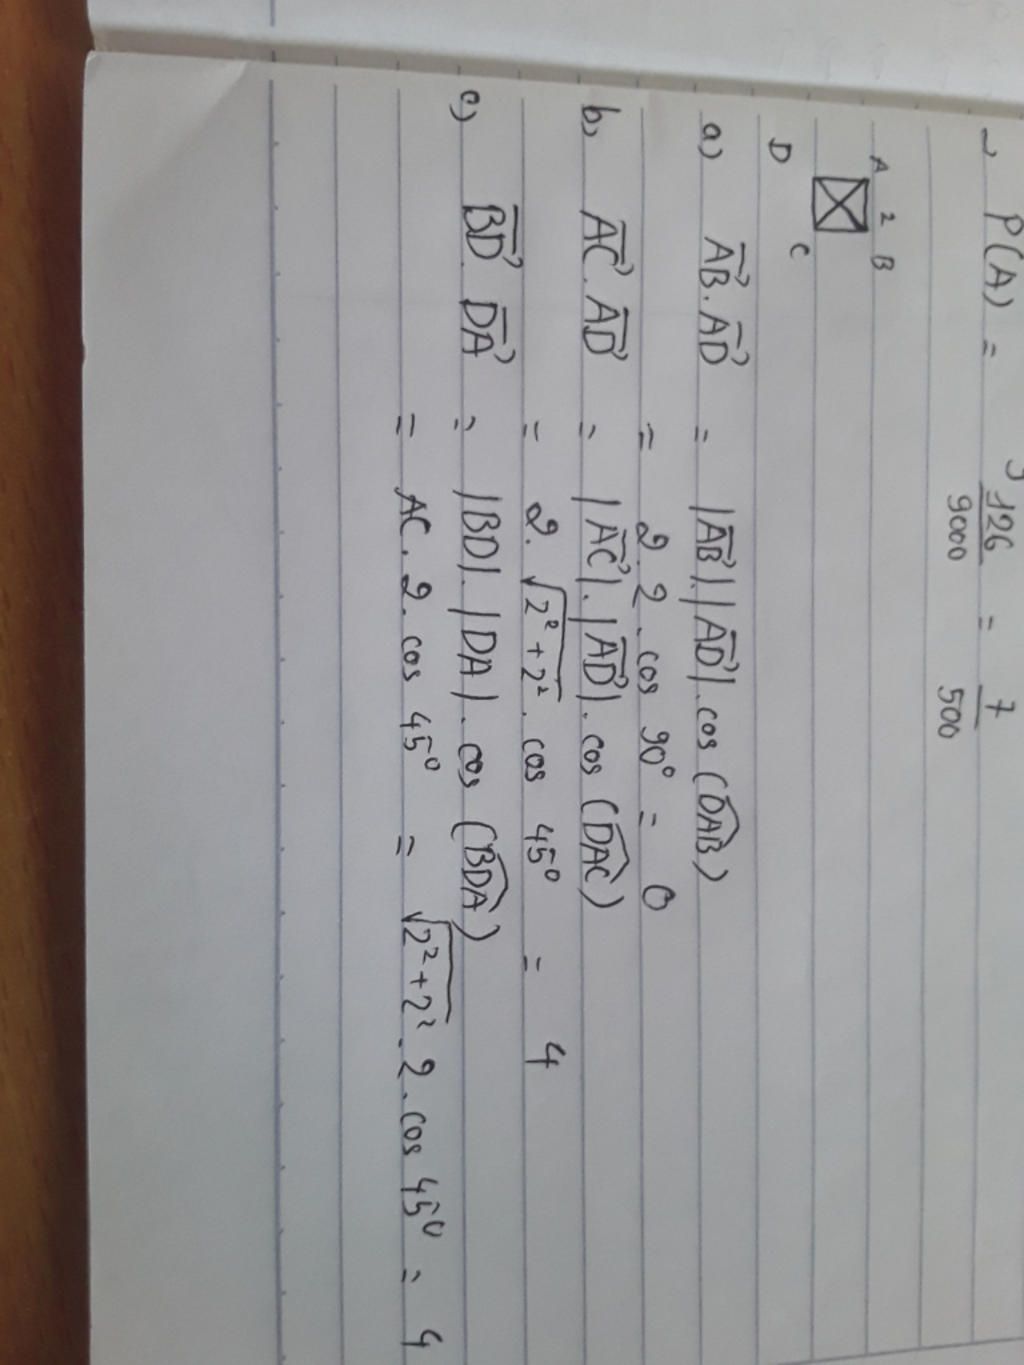 P(A) = 126/9000 = 7/500
A 2 B
D C
a) AB⃗.AD⃗ = |AB⃗|.|AD⃗|.cos (DAB̂)
= 2.2.cos 90° = 0
b, AC⃗.AD⃗ = |AC⃗|.|AD⃗|.cos (DAĈ)
= 2.√(2²+2²).cos 45° = 4
c) BD⃗.DA⃗ = |BD|.|DA|.cos (BDÂ)
= AC.2.cos 45° = √(2²+2²).2.cos 45° = 4